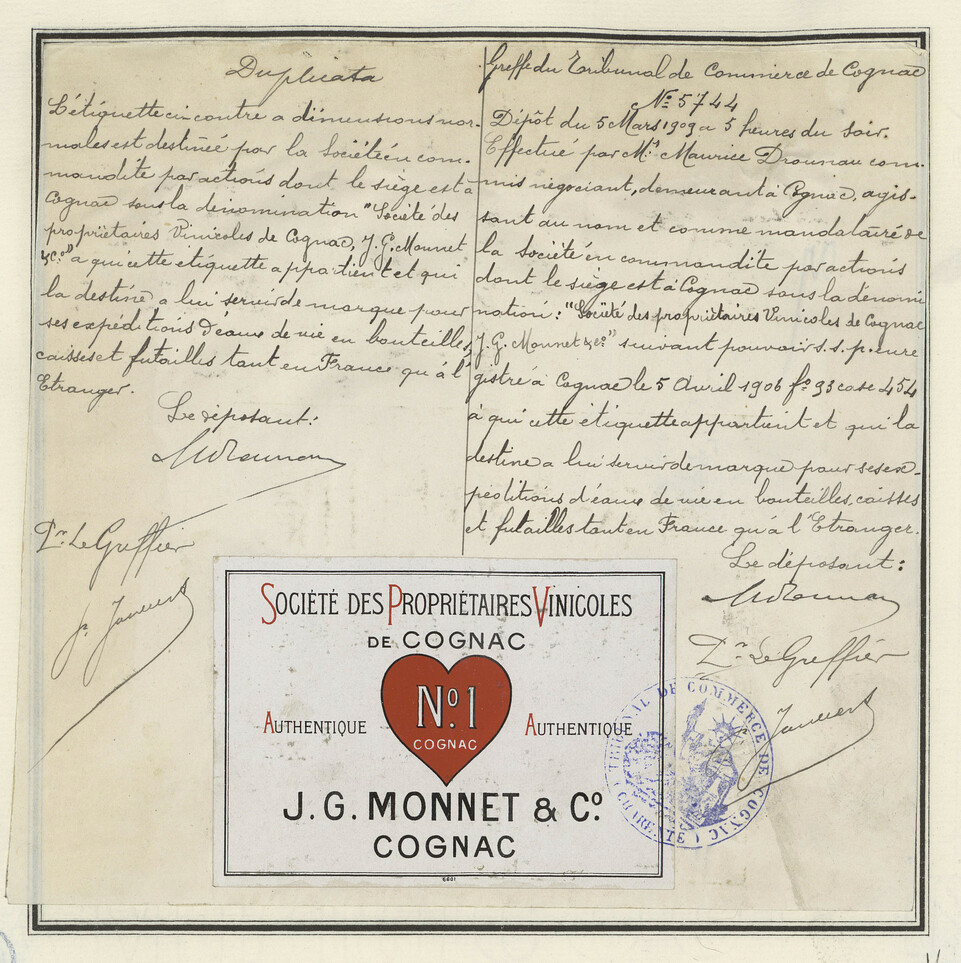 Duplicata
L'étiquette ci-contre a dimensions nor-
males est destinée par la Société en com-
mandite par actions dont le siège est à
Cognac sous la dénomination "Société des
propriétaires Vinicoles de Cognac, J. G. Monnet
& Co." a qui cette étiquette appartient et qui
la destine a lui servir de marque pour
ses expéditions d'eaux de vie en bouteilles,
caisses et futailles tant en France qu'à l'
Etranger.
Le déposant:
Pr. Le Greffier
Greffe du Tribunal de Commerce de Cognac
No. 5744
Dépôt du 5 Mars 1909 a 5 heures du soir.
Effectué par Mr. Maurice Drounau com-
mis négociant, demeurant à Cognac, agis-
sant au nom et comme mandataire de
la Société en commandite par actions
dont le siège est à Cognac sous la dénomi
nation: "Société des propriétaires Vinicoles de Cognac
J. G. Monnet & Co." suivant pouvoir s.s.p. enre
gistré à Cognac le 5 Avril 1906 fo. 93 case 454
à qui cette étiquette appartient et qui la
destine a lui servir de marque pour ses ex-
péditions d'eaux de vie en bouteilles, caisses
et futailles tant en France qu'à l'Etranger.
Le déposant:
Pr. Le Greffier
SOCIÉTÉ DES PROPRIÉTAIRES VINICOLES
DE COGNAC
No. 1
COGNAC
AUTHENTIQUE AUTHENTIQUE
J. G. MONNET & Co.
COGNAC
TRIBUNAL DE COMMERCE DE COGNAC (CHARENTE)